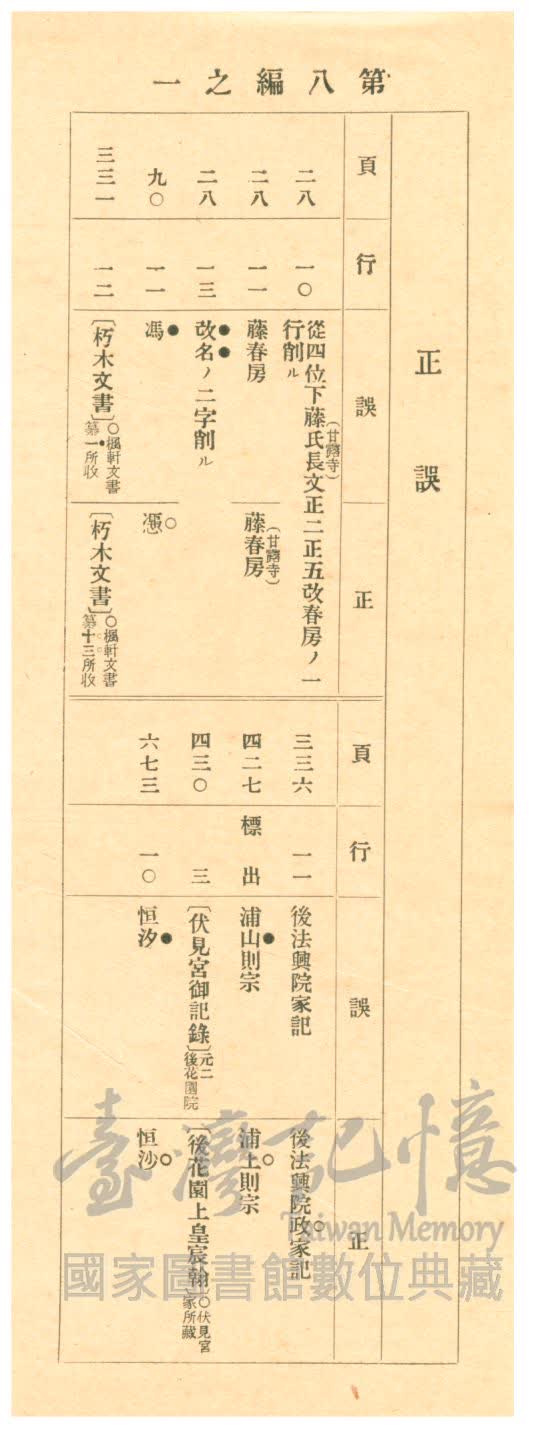 第八編之一
正誤
頁 行 誤 正
二八 一〇 從四位下藤氏長(甘露寺)文正二正五改春房ノ一行削ル
二八 一一 藤春房 藤春房(甘露寺)
二八 一三 改名ノ二字削ル
九〇 一一 馮 憑
三三一 一二 〔朽木文書〕○楓軒文書纂一所收 〔朽木文書〕○楓軒文書纂十三所收
頁 行 誤 正
三三六 一一 後法興院家記 後法興院政家記
四二七 標出 浦山則宗 浦上則宗
四三〇 三 〔伏見宮御記錄〕元二後花園院 〔後花園上皇宸翰〕○伏見宮家所藏
六七三 一〇 恒汐 恒沙
臺灣記憶
Taiwan Memory
國家圖書館數位典藏